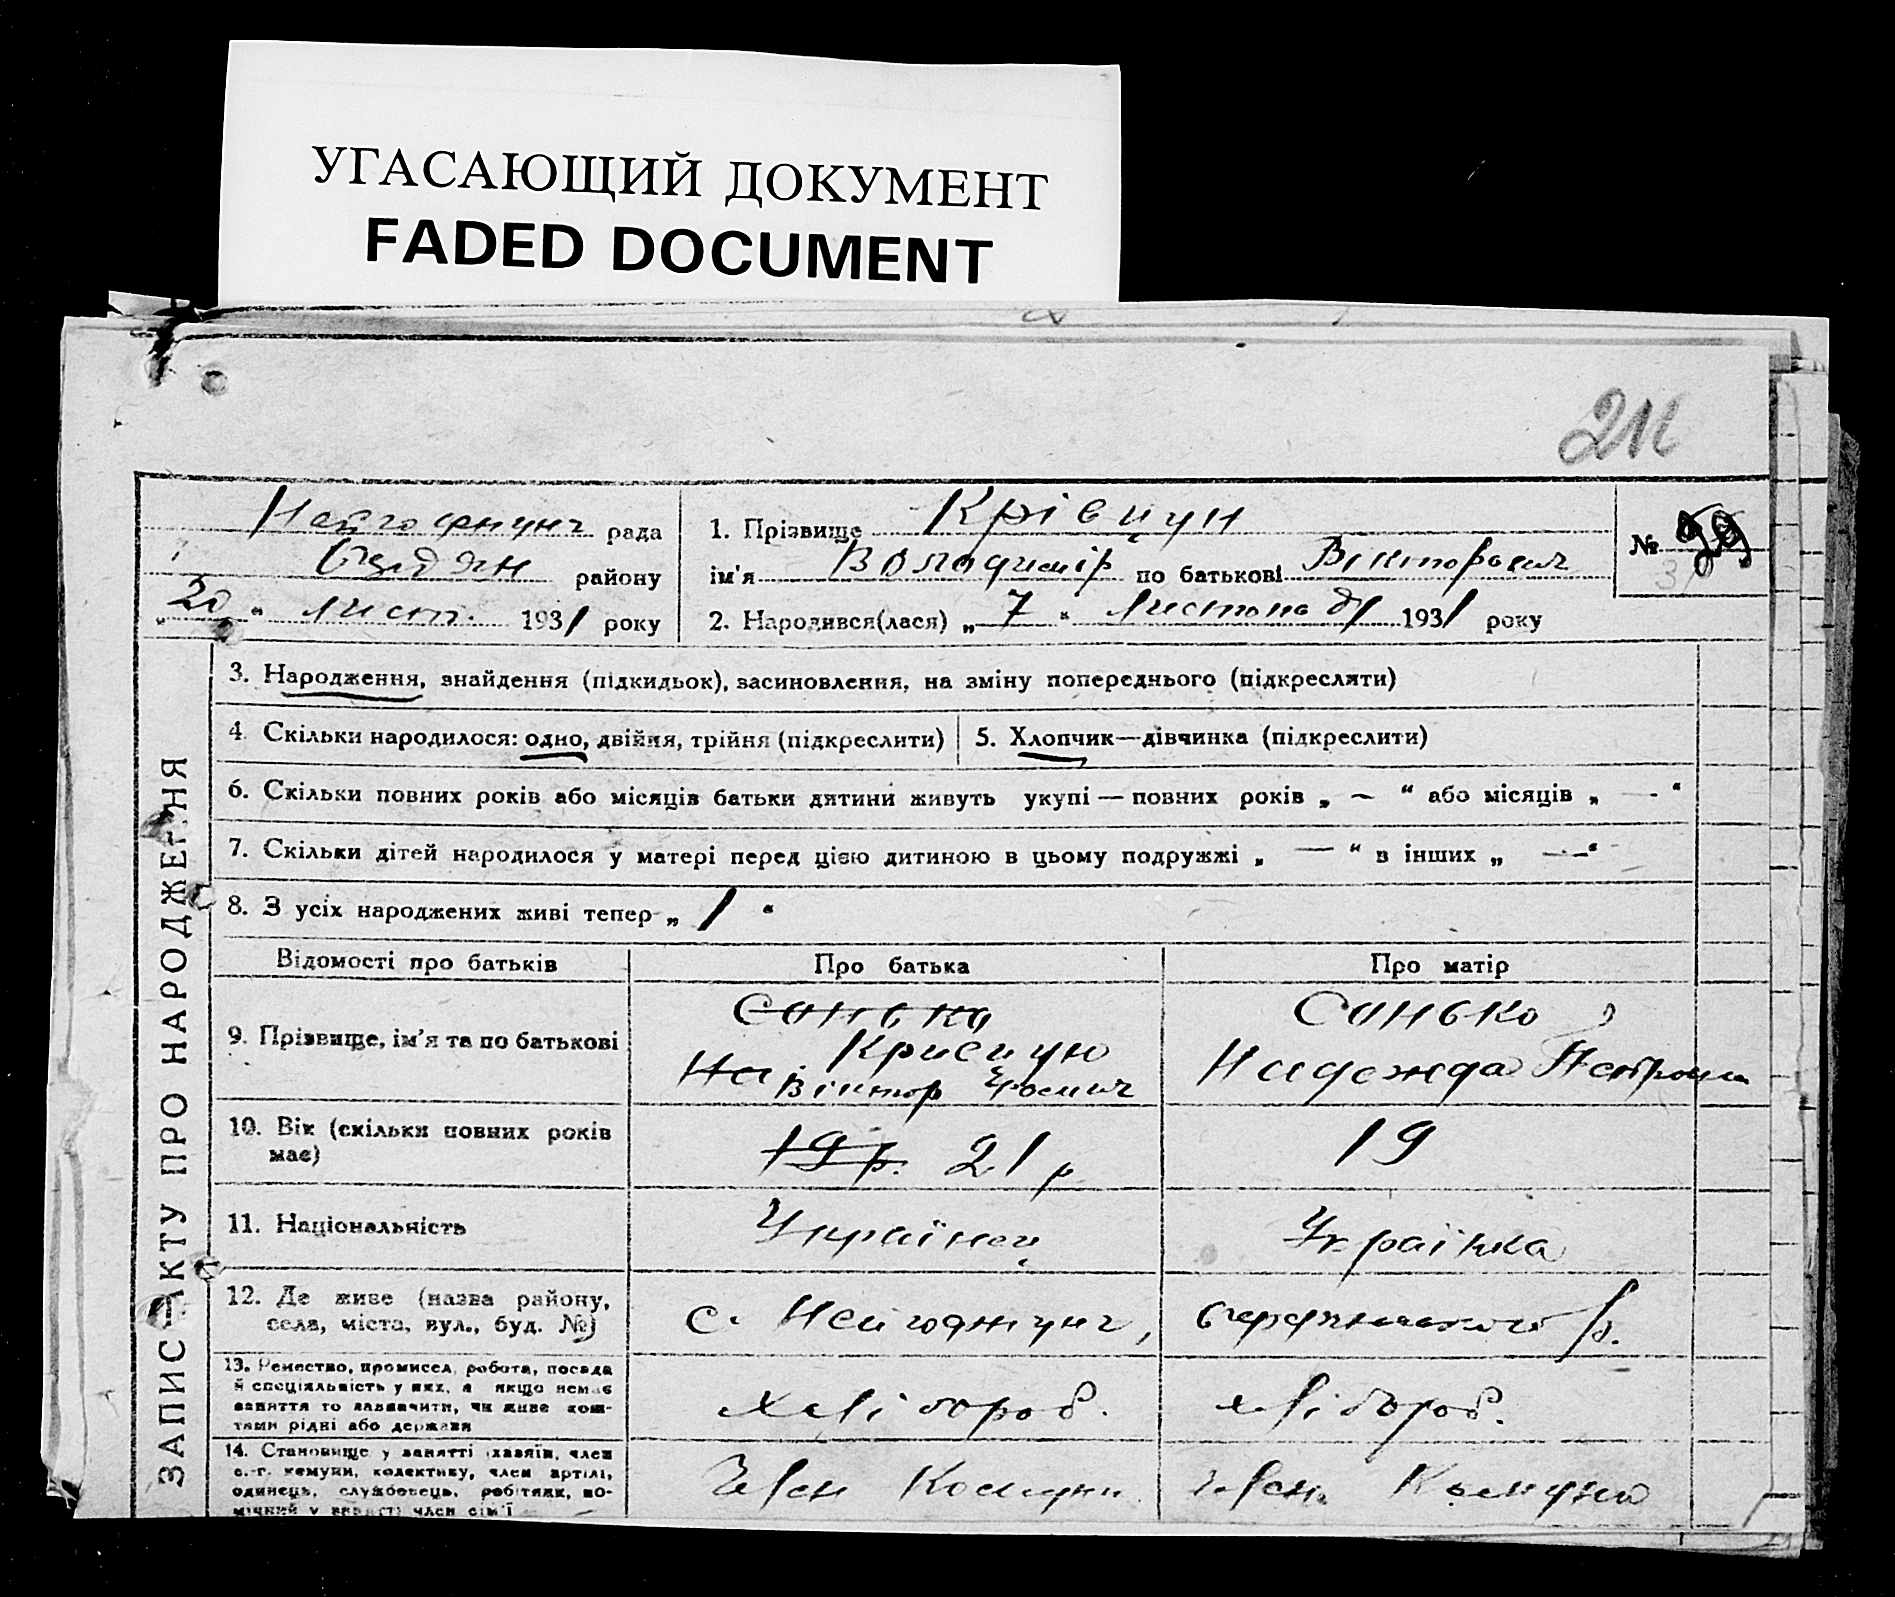 УГАСАЮЩИЙ ДОКУМЕНТ
FADED DOCUMENT
рада
району
„ 20 " лист. 1931 року
1. Прізвище Крівцун
ім'я Володимір по батькові Вікторович
2. Народився(лася) „ 7 " Листопада 1931 року
№ 99
ЗАПИС АКТУ ПРО НАРОДЖЕННЯ
3. Народження, знайдення (підкидьок), засиновлення, на зміну попереднього (підкреслити)
4. Скільки народилося: одно, двійня, трійня (підкреслити)
5. Хлопчик—дівчинка (підкреслити)
6. Скільки повних років або місяців батьки дитини живуть укупі — повних років „ — " або місяців „ — "
7. Скільки дітей народилося у матері перед цією дитиною в цьому подружжі „ — " в інших „ — "
8. З усіх народжених живі тепер „ 1 "
Відомості про батьків
Про батька
Про матір
9. Прізвище, ім'я та по батькові
Санько
Віктор
Санько
Надежда
10. Вік (скільки повних років
має)
19 р. 21 р
19
11. Національність
Українец
Українка
12. Де живе (назва району,
села, міста, вул., буд. №)
с.
р.
13. Ремество, промисел, робота, посада
й спеціяльність у них, а якщо немає
заняття то зазначити, чи живе кош-
тами рідні або держави
хлібороб.
хлібороб.
14. Становище у занятті (хазяїн, член
с.-г. комуни, колективу, член артілі,
одинець, службовець, робітник, по-
мічний у занятті член сім'ї
Член Комуни
член Комуни